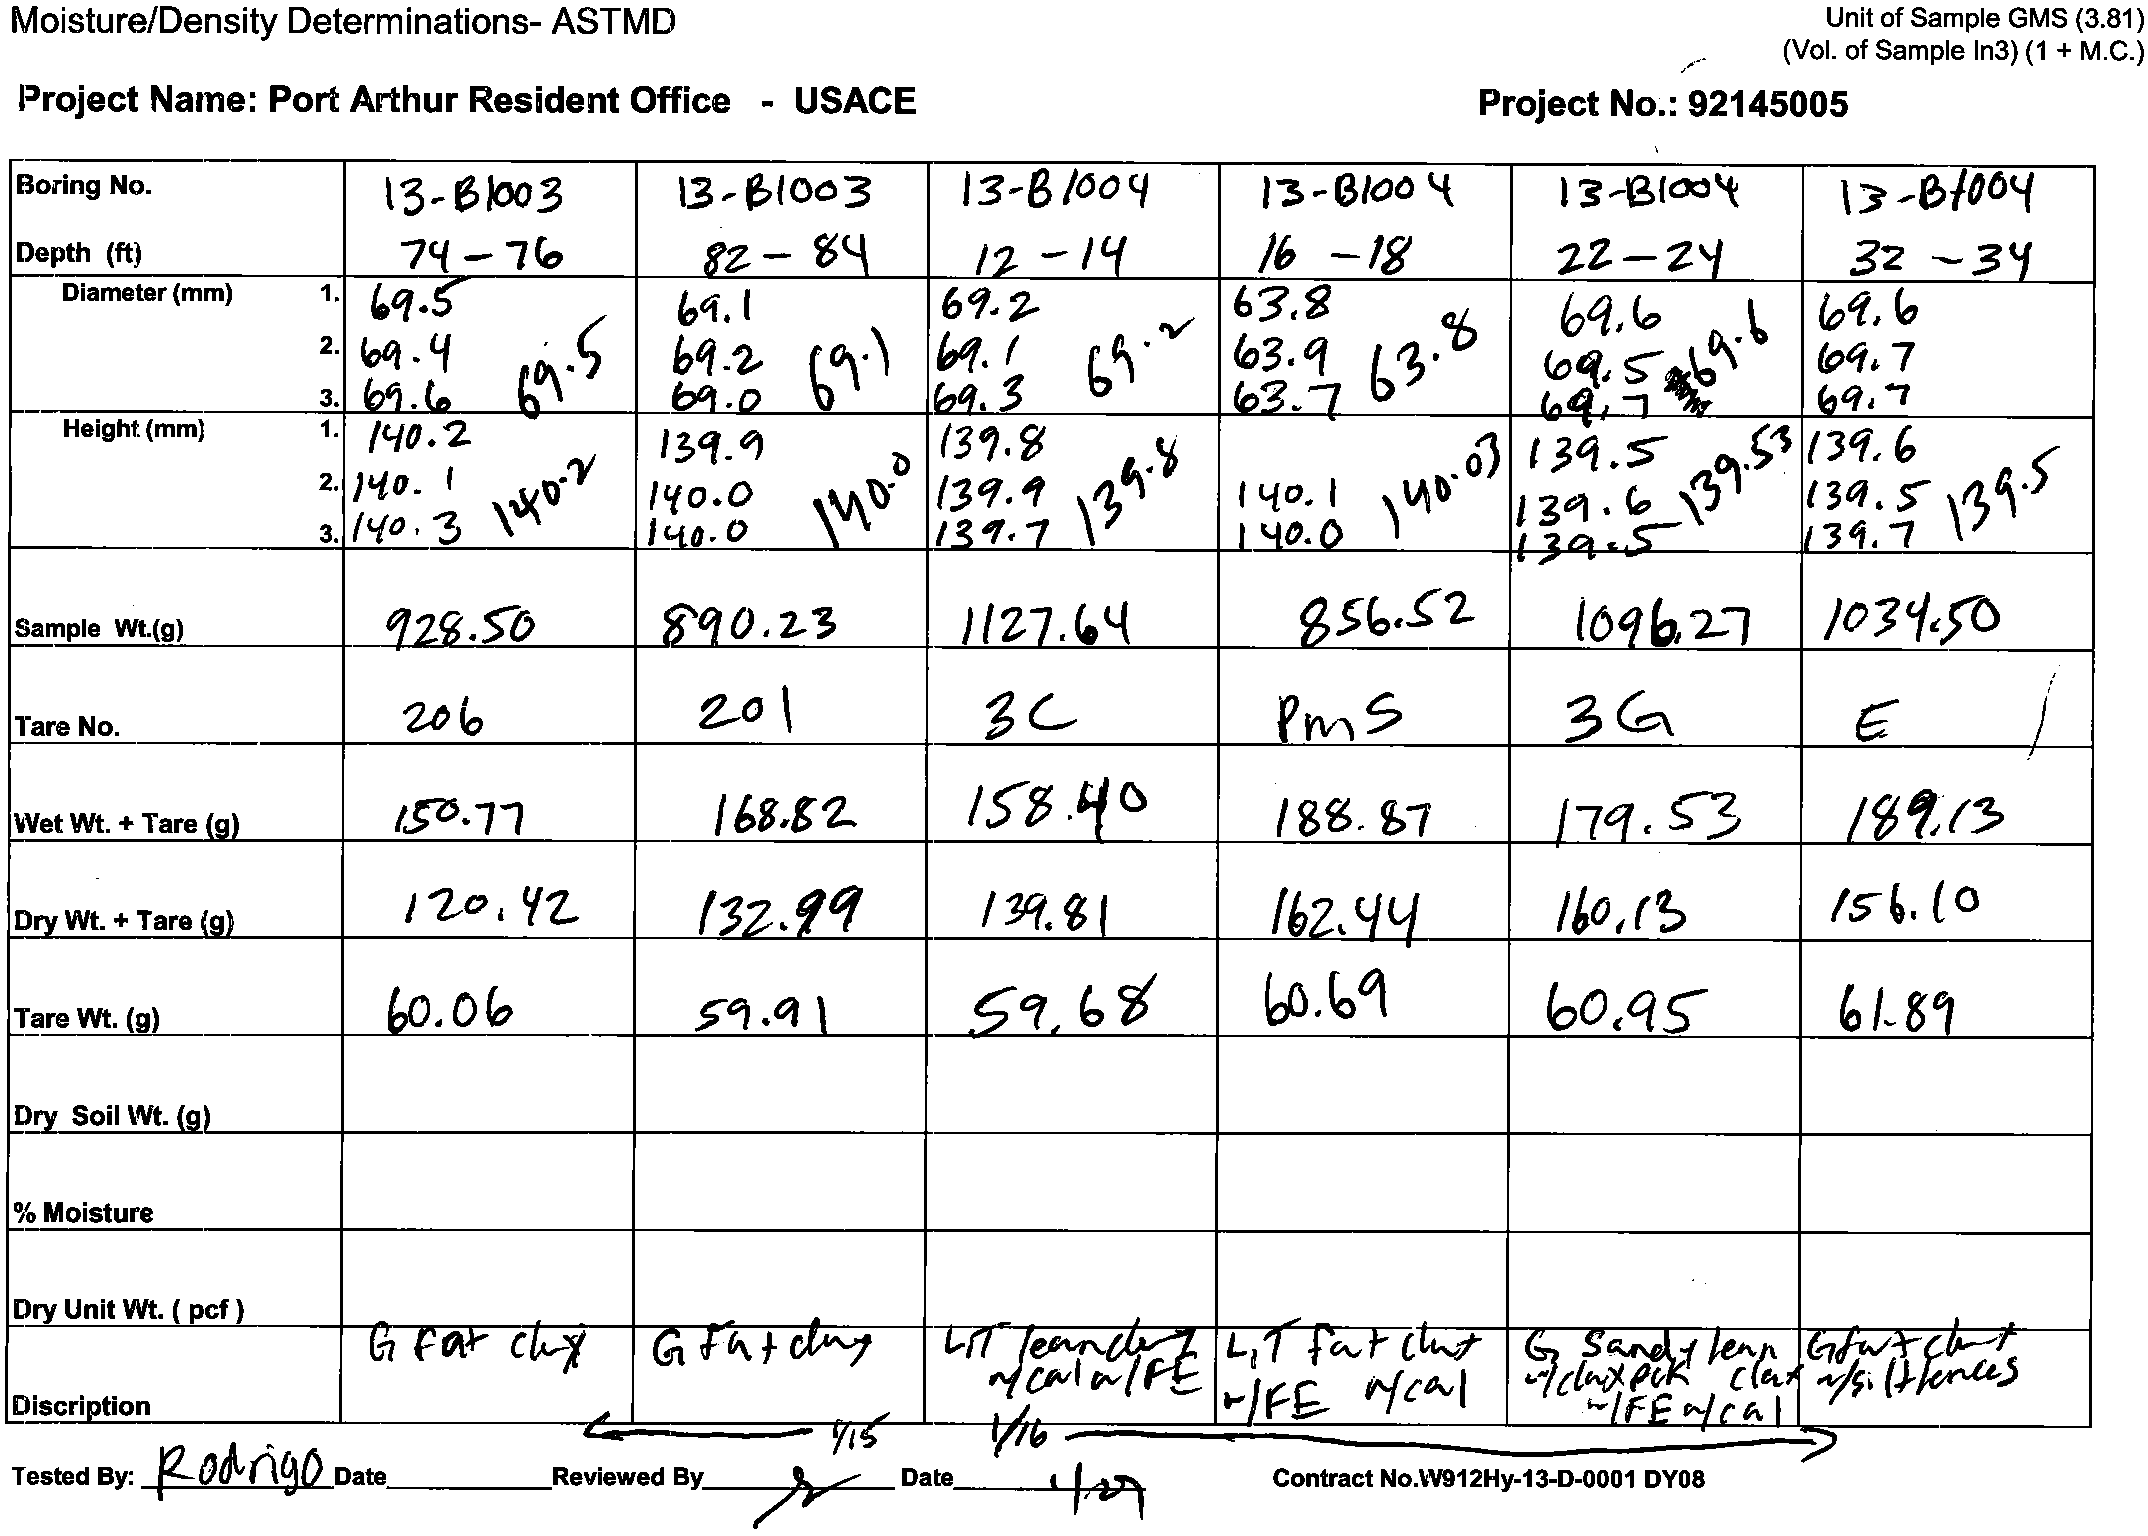 Moisture/Density Determinations- ASTMD
Unit of Sample GMS (3.81)
(Vol. of Sample In3) (1 + M.C.)
Project Name: Port Arthur Resident Office - USACE
Project No.: 92145005
Boring No. 13-B1003 13-B1003 13-B1004 13-B1004 13-B1004 13-B1004
Depth (ft) 74-76 82-84 12-14 16-18 22-24 32-34
Diameter (mm) 1. 69.5 69.1 69.2 63.8 69.6 69.6
2. 69.4 69.5 69.2 69.1 69.1 69.2 63.9 63.8 69.5 69.6 69.7
3. 69.6 69.0 69.3 63.7 69.7 69.7
Height (mm) 1. 140.2 139.9 139.8 139.5 139.6
2. 140.1 140.2 140.0 140.0 139.9 139.8 140.1 140.03 139.6 139.53 139.5 139.5
3. 140.3 140.0 139.7 140.0 139.5 139.7
Sample Wt.(g) 928.50 890.23 1127.64 856.52 1096.27 1034.50
Tare No. 206 201 3C PmS 3G E
Wet Wt. + Tare (g) 150.77 168.82 158.40 188.87 179.53 189.13
Dry Wt. + Tare (g) 120.42 132.99 139.81 162.44 160.13 156.10
Tare Wt. (g) 60.06 59.91 59.68 60.69 60.95 61.89
Dry Soil Wt. (g)
% Moisture
Dry Unit Wt. ( pcf )
G Fat clay G Fat clay LT lean clay L,T fat clay G Sandy lean G fat clay
w/cal w/FE w/clay pck clay w/silt
Discription w/FE w/cal w/FE w/cal
1/15 1/16
Tested By: Rodrigo Date Reviewed By Date 1/27 Contract No.W912Hy-13-D-0001 DY08